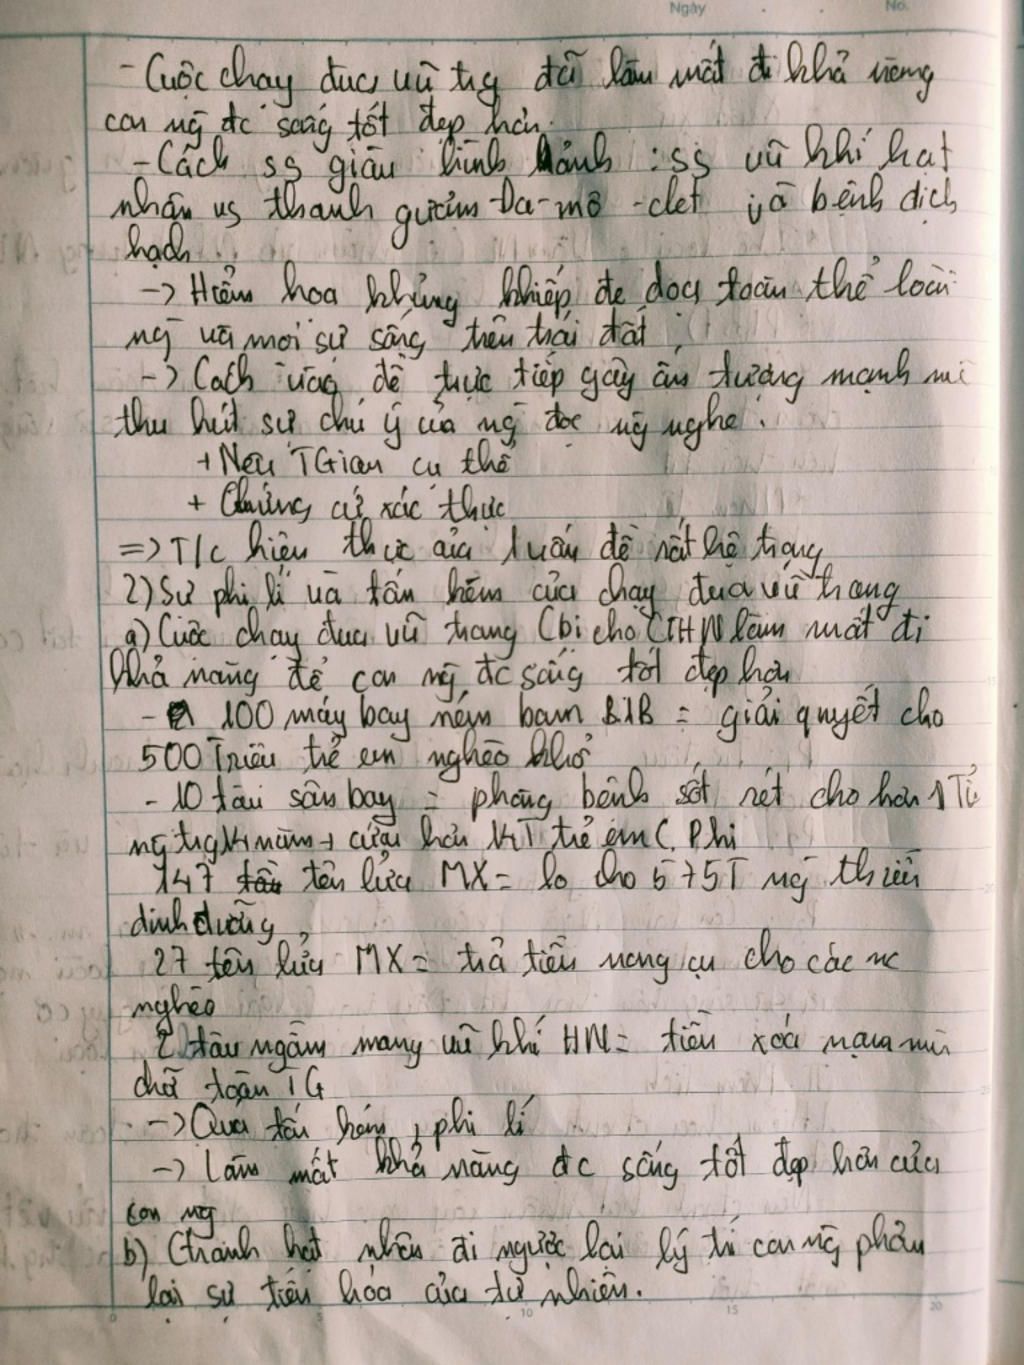 Ngày No.
- Cuộc chạy đua vũ trg đã làm mất đi khả năng
con ng đc sống tốt đẹp hơn.
- Cách ss giàu hình ảnh : ss vũ khí hạt
nhân vs thanh gươm Đa-mô-clet và bệnh dịch
hạch
-> Hiểm họa khủng khiếp đe dọa toàn thể loài
ng và mọi sự sống trên trái đất.
-> Cách đề trực tiếp gây ấn tượng mạnh mẽ
thu hút sự chú ý của ng đọc ng nghe.
+ Nêu TGian cụ thể
+ Chứng cứ xác thực
=> T/c hiện thực của vấn đề rất hệ trọng
2) Sự phi lí và tốn kém của chạy đua vũ trang
a) Cuộc chạy đua vũ trang Cbị cho CTHN làm mất đi
khả năng để con ng đc sống tốt đẹp hơn
- 100 máy bay ném bom B1B = giải quyết cho
500 Triệu trẻ em nghèo khổ
- 10 tàu sân bay = phòng bệnh sốt rét cho hơn 1 Tỉ
ng trg 14 năm + cứu hơn 14T trẻ em C. Phi
147 tên lửa MX = lo cho 575T ng thiếu
dinh dưỡng,
27 tên lửa MX = trả tiền nông cụ cho các nc
nghèo
2 tàu ngầm mang vũ khí HN = tiền xóa nạn mù
chữ toàn TG
-> Quá tốn kém, phi lí
-> Làm mất khả năng đc sống tốt đẹp hơn của
con ng
b) Ctranh hạt nhân đi ngược lại lý trí con ng phản
lại sự tiến hóa của tự nhiên.
0 5 10 15 20